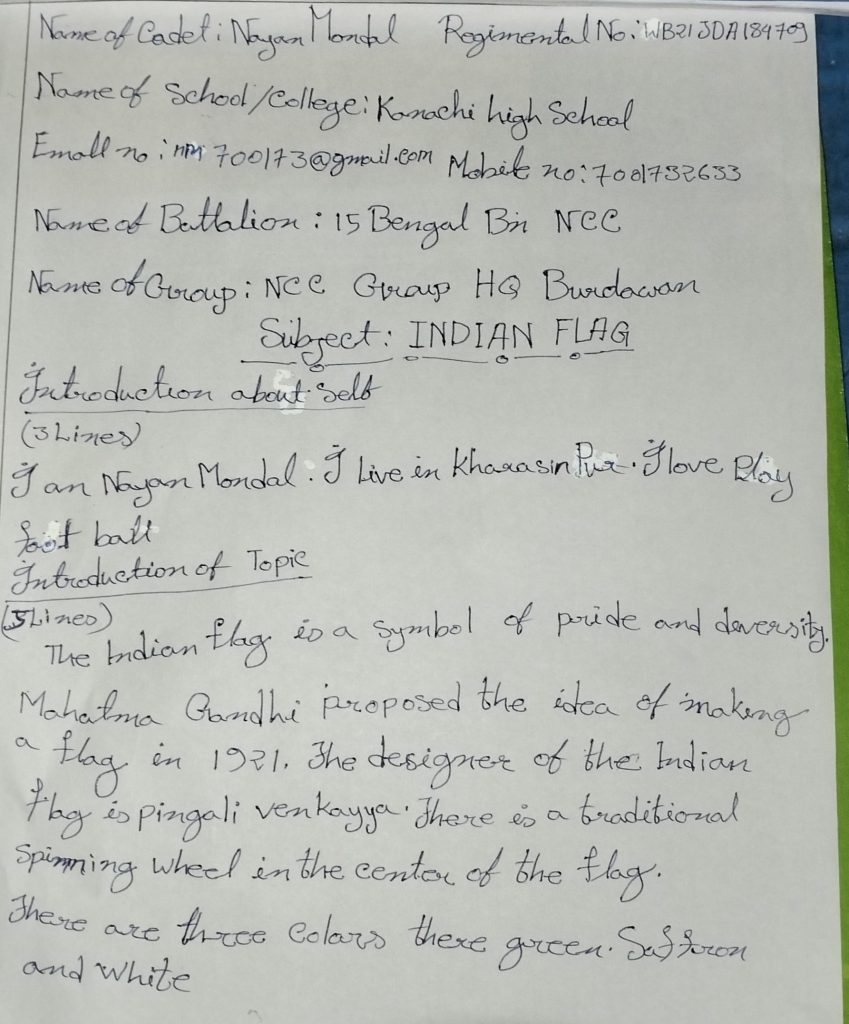 Name of Cadet: Nayan Mondal Regimental No: WB21JDA184709
Name of School/College: Kanachi high School
Emall no: 700173@gmail.com Mobile no: 7001732633
Name of Battalion: 15 Bengal Bn NCC
Name of Group: NCC Group HQ Burdawan
Subject: INDIAN FLAG
Introduction about Self
(3 Lines)
I an Nayan Mondal. I Live in Kharasin Pur. I love Play
foot ball
Introduction of Topic
(5 Lines)
The Indian flag is a symbol of pride and deversity.
Mahatma Gandhi proposed the idea of making
a flag in 1921. The designer of the Indian
flag is pingali venkayya. There is a traditional
Spinning wheel in the center of the flag.
There are three Colars there green. Saffron
and White